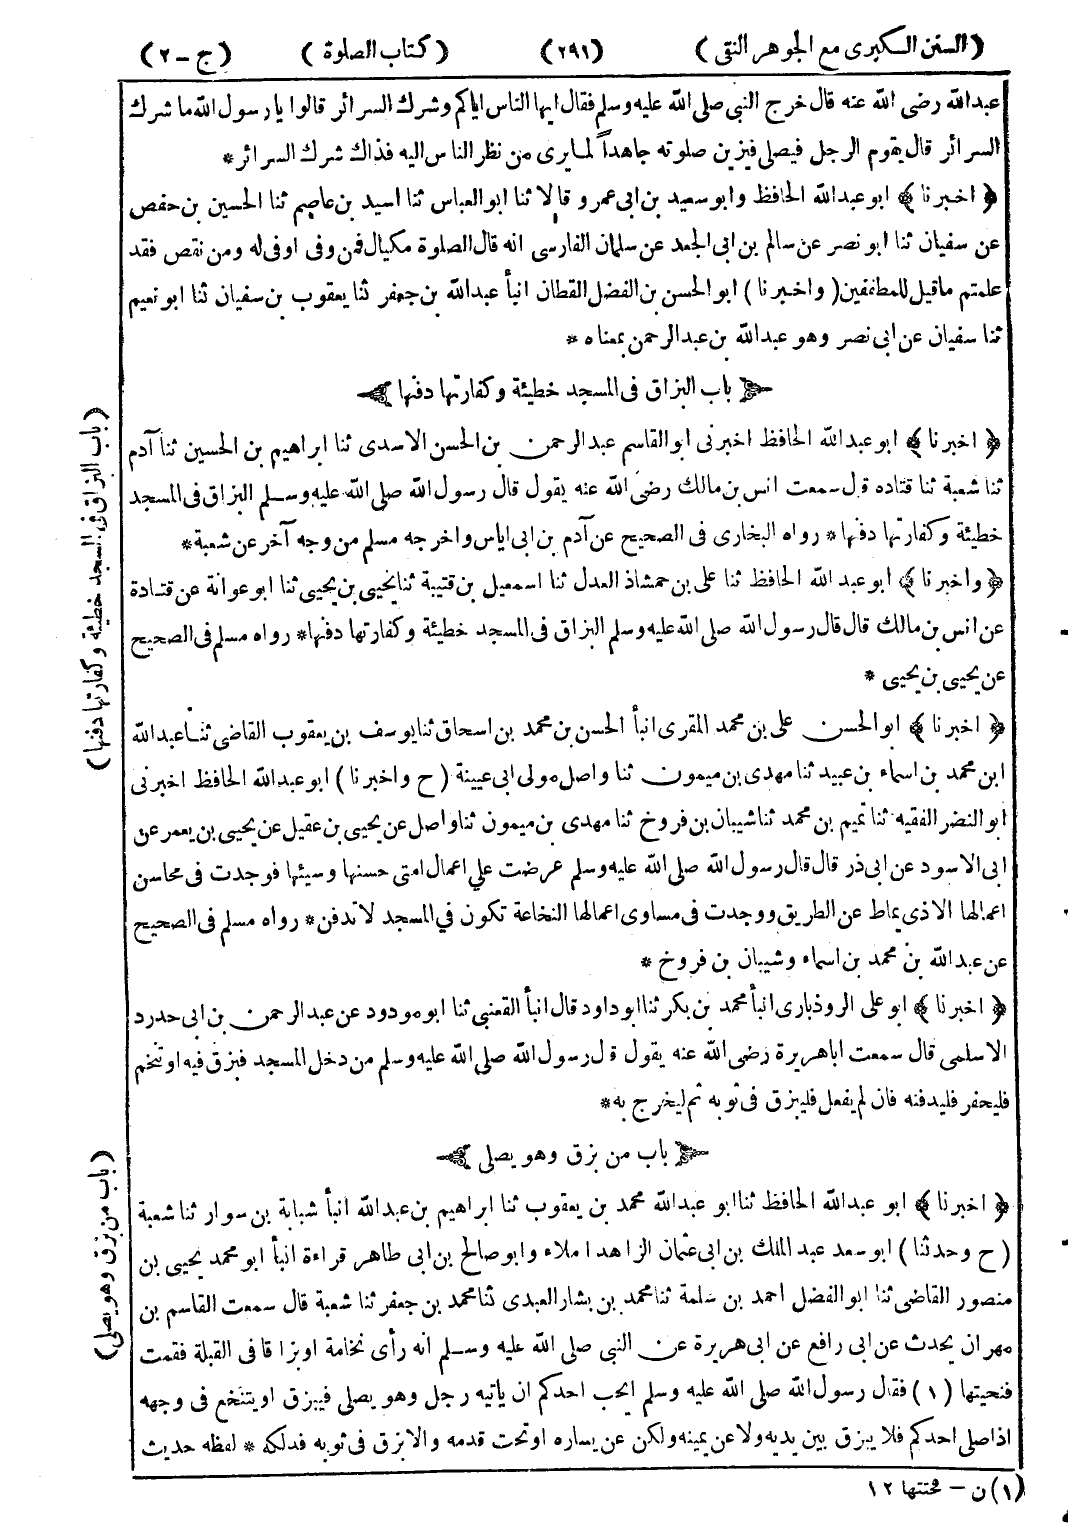 (السنن الكبرى مع الجوهر النقى) (٢٩١) (كتاب الصلوة) (ج-٢)
عبدالله رضى الله عنه قال خرج النبي صلى الله عليه وسلم فقال ايها الناس اياكم وشرك السرائر قالوا يا رسول الله ما شرك
السرائر قال يقوم الرجل فيصلى فيزين صلوته جاهداً لما يرى من نظر الناس اليه فذاك شرك السرائر*
﴿ اخبرنا ﴾ ابو عبدالله الحافظ وابو سعيد بن ابى عمرو قالا ثنا ابو العباس ثنا اسيد بن عاصم ثنا الحسين بن حفص
عن سفيان ثنا ابو نصر عن سالم بن ابى الجعد عن سلمان الفارسى انه قال الصلوة مكيال فمن وفى اوفى له ومن نقص فقد
علمتم ماقيل للمطففين (واخبرنا) ابو الحسن بن الفضل القطان انبأ عبدالله بن جعفر ثنا يعقوب بن سفيان ثنا ابو نعيم
ثنا سفيان عن ابى نصر وهو عبدالله بن عبدالرحمن بمعناه *
باب البزاق فى المسجد خطيئة وكفارتها دفنها
﴿ اخبرنا ﴾ ابو عبدالله الحافظ اخبرنى ابو القاسم عبدالرحمن بن الحسن الاسدى ثنا ابراهيم بن الحسين ثنا آدم
ثنا شعبة ثنا قتاده قال سمعت انس بن مالك رضى الله عنه يقول قال رسول الله صلى الله عليه وسلم البزاق فى المسجد
خطيئة وكفارتها دفنها* رواه البخارى فى الصحيح عن آدم بن ابى اياس واخرجه مسلم من وجه آخر عن شعبة*
﴿ واخبرنا ﴾ ابو عبد الله الحافظ ثنا على بن حمشاذ العدل ثنا اسمعيل بن قتيبة ثنا يحيى بن يحيى ثنا ابو عوانة عن قتادة
عن انس بن مالك قال قال رسول الله صلى الله عليه وسلم البزاق فى المسجد خطيئة وكفارتها دفنها* رواه مسلم فى الصحيح
عن يحيى بن يحيى *
﴿ اخبرنا ﴾ ابو الحسن على بن محمد المقرى انبأ الحسن بن محمد بن اسحاق ثنا يوسف بن يعقوب القاضى ثنا عبدالله
ابن محمد بن اسماء بن عبيد ثنا مهدى بن ميمون ثنا واصل مولى ابى عيينة (ح واخبرنا) ابو عبدالله الحافظ اخبرنى
ابو النضر الفقيه ثنا تميم بن محمد ثنا شيبان بن فروخ ثنا مهدى بن ميمون ثنا واصل عن يحيى بن عقيل عن يحيى بن يعمر عن
ابى الاسود عن ابى ذر قال قال رسول الله صلى الله عليه وسلم عرضت علي اعمال امتى حسنها وسيئها فوجدت فى محاسن
اعمالها الاذى يماط عن الطريق ووجدت فى مساوى اعمالها النخاعة تكون في المسجد لا تدفن* رواه مسلم فى الصحيح
عن عبدالله بن محمد بن اسماء وشيبان بن فروخ *
﴿ اخبرنا ﴾ ابو على الروذبارى انبأ محمد بن بكر ثنا ابو داود قال انبأ القعنبي ثنا ابو مودود عن عبدالرحمن بن ابى حدرد
الاسلمى قال سمعت اباهريرة رضى الله عنه يقول قال رسول الله صلى الله عليه وسلم من دخل المسجد فبزق فيه او تنخم
فليحفر فليدفنه فان لم يفعل فليبزق فى ثوبه ثم ليخرج به*
باب من بزق وهو يصلى
﴿ اخبرنا ﴾ ابو عبدالله الحافظ ثنا ابو عبدالله محمد بن يعقوب ثنا ابراهيم بن عبدالله انبأ شبابة بن سوار ثنا شعبة
(ح وحدثنا) ابو سعد عبد الملك بن ابى عثمان الزاهد املاء وابو صالح بن ابى طاهر قراءة انبأ ابو محمد يحيى بن
منصور القاضى ثنا ابو الفضل احمد بن سلمة ثنا محمد بن بشار العبدى ثنا محمد بن جعفر ثنا شعبة قال سمعت القاسم بن
مهران يحدث عن ابى رافع عن ابى هريرة عن النبي صلى الله عليه وسلم انه رأى نخامة او بزاقا فى القبلة فقمت
فنحيتها (١) فقال رسول الله صلى الله عليه وسلم ايحب احدكم ان ياتيه رجل وهو يصلى فيبزق او يتنخع فى وجهه
اذا صلى احدكم فلا يبزق بين يديه ولا عن يمينه ولكن عن يساره او تحت قدمه والا بزق فى ثوبه فدلكه * لفظه حديث
(١) ن - فحتتها ١٢
(باب البزاق فى المسجد خطيئة وكفارتها دفنها)
(باب من بزق وهو يصلى)